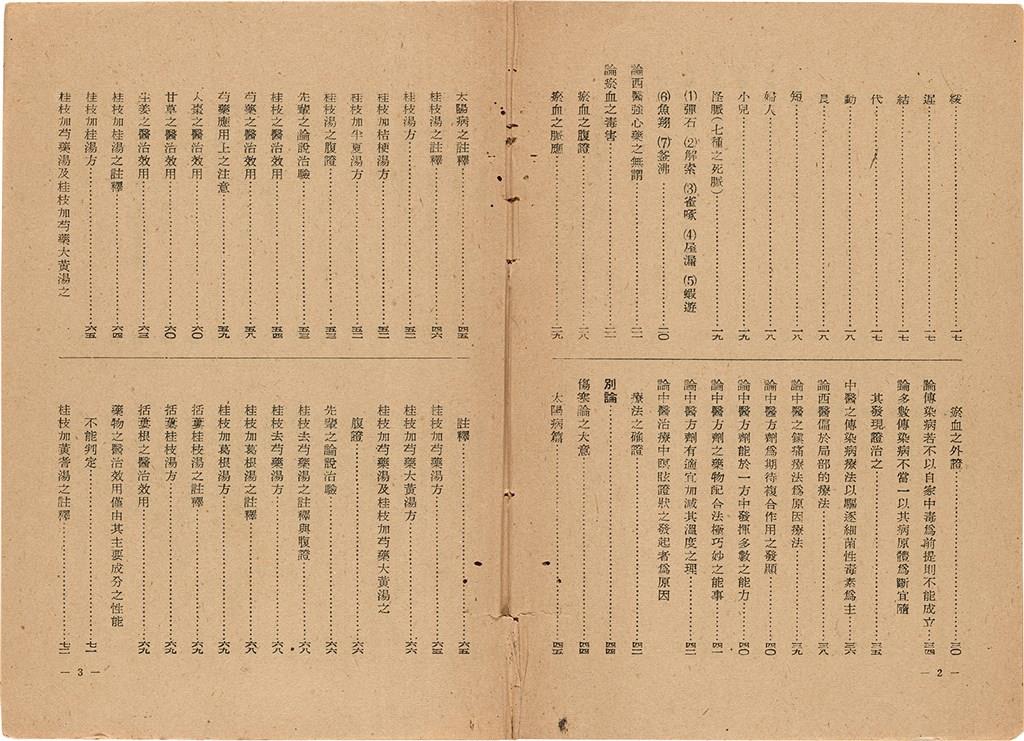 緩……………一七
遲……………一七
結……………一七
代……………一七
動……………一八
長……………一八
短……………一八
婦人……………一八
小兒……………一九
怪脈(七種之死脈)……………一九
⑴彈石 ⑵解索 ⑶雀啄 ⑷屋漏 ⑸蝦遊
⑹魚翔 ⑺釜沸……………二〇
論西醫強心藥之無謂……………二一
論瘀血之毒害……………二一
瘀血之腹證……………二八
瘀血之脈應……………二九
瘀血之外證……………三〇
論傳染病若不以自家中毒爲前提則不能成立……三四
論多數傳染病不當一以其病原體爲斷宜隨
其發現證治之……………三五
中醫之傳染病療法以驅逐細菌性毒素爲主……三六
論西醫偏於局部的療法……………三八
論中醫之鎮痛療法爲原因療法……………三九
論中醫方劑爲期待複合作用之發顯……………四〇
論中醫方劑能於一方中發揮多數之能力……四〇
論中醫方劑之藥物配合法極巧妙之能事……四一
論中醫方劑有適宜加減其溫度之理……………四二
論中醫治療中瞑眩證狀之發起者爲原因
療法之確證……………四二
別論……………四四
傷寒論之大意……………四四
太陽病篇……………四五
— 2 —
太陽病之註釋……………四五
桂枝湯之註釋……………四六
桂枝湯方……………五二
桂枝加桔梗湯方……………五二
桂枝加半夏湯方……………五二
桂枝湯之腹證……………五三
先輩之論說治驗……………五三
桂枝之醫治效用……………五四
芍藥之醫治效用……………五八
芍藥應用上之注意……………五九
大棗之醫治效用……………六〇
甘草之醫治效用……………六〇
生姜之醫治效用……………六三
桂枝加桂湯之註釋……………六四
桂枝加桂湯方……………六五
桂枝加芍藥湯及桂枝加芍藥大黃湯之
註釋……………六五
桂枝加芍藥湯方……………六六
桂枝加芍藥大黃湯方……………六六
桂枝加芍藥湯及桂枝加芍藥大黃湯之
腹證……………六六
先輩之論說治驗……………六六
桂枝去芍藥湯之註釋與腹證……………六八
桂枝去芍藥湯方……………六八
桂枝加葛根湯之註釋……………六八
桂枝加葛根湯方……………六八
括蔞桂枝湯之註釋……………六九
括蔞桂枝湯方……………六九
括蔞根之醫治效用……………六九
藥物之醫治效用僅由其主要成分之性能
不能判定……………七一
桂枝加黃耆湯之註釋……………七二
— 3 —